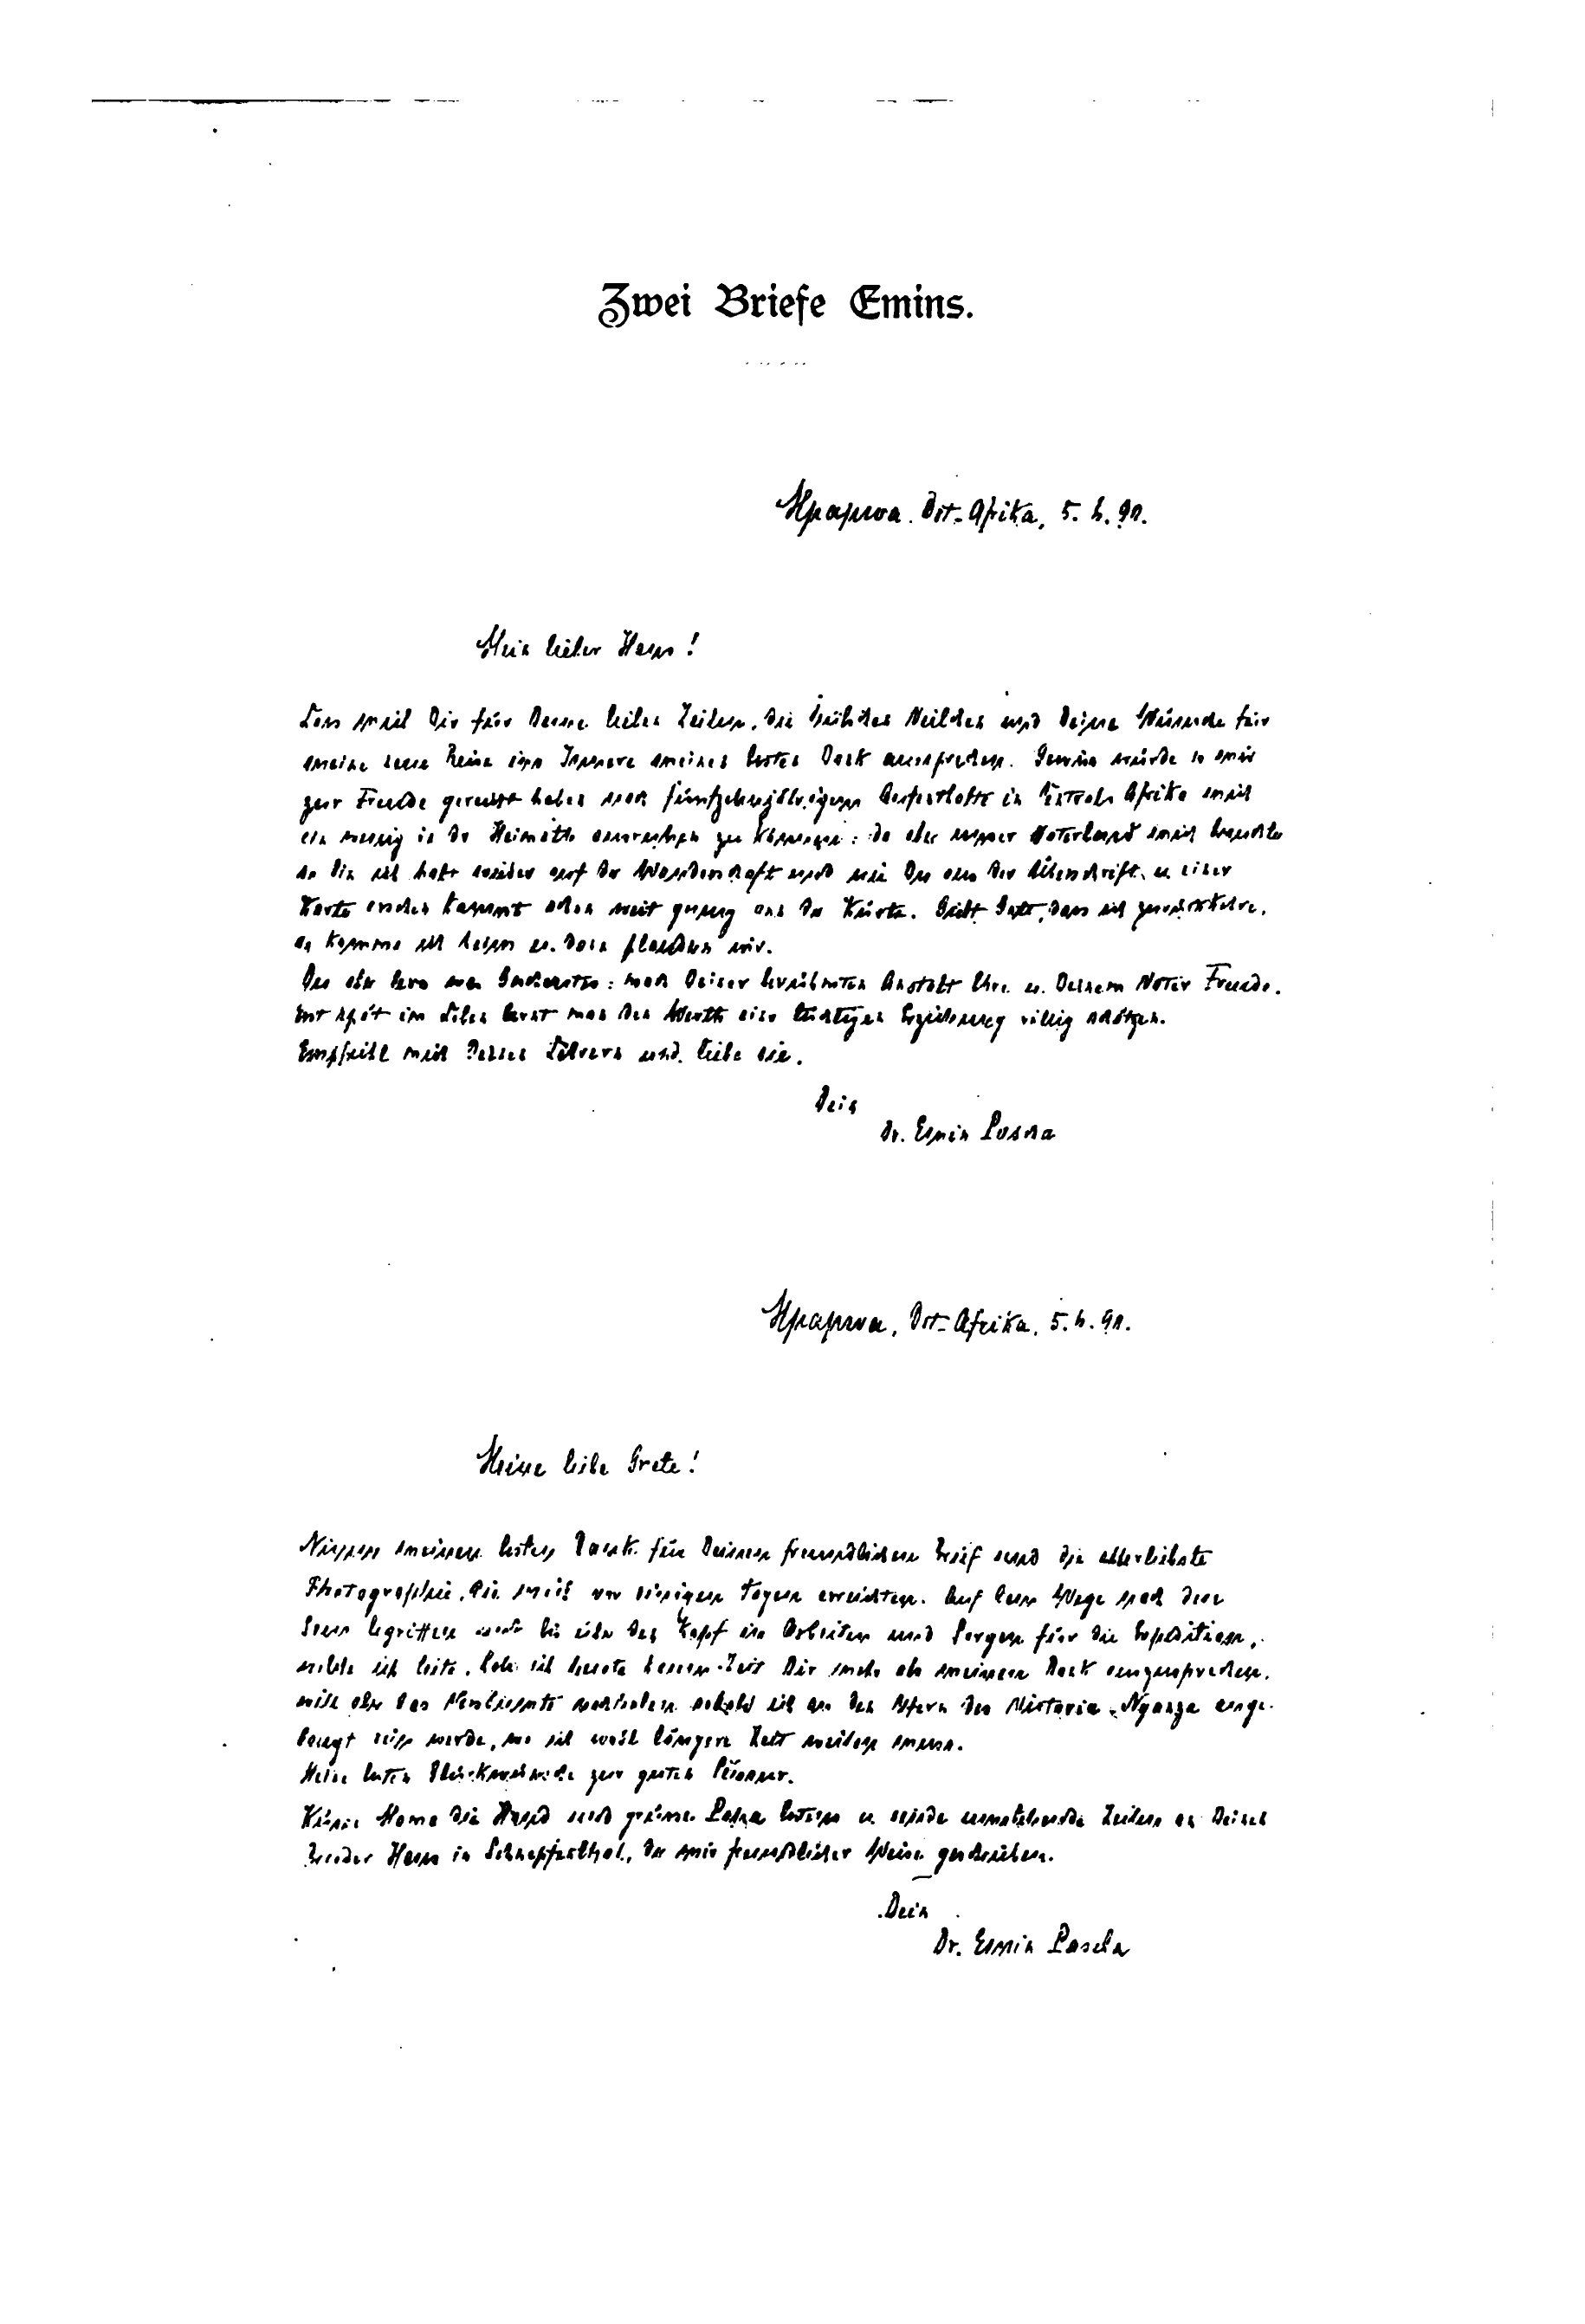 Zwei Briefe Emins.
Mpapwa. Ost-Afrika, 5. 6. 90.
Mein lieber Hans!
Lass mich Dir für Deine lieben Zeilen, die hübschen Veilchen und Deine Wünsche für
meine neue Reise ins Innere meinen besten Dank aussprechen. Gewiss würde es mir
zur Freude gereicht haben nach fünfzehnjährigem Aufenthalte in Central Afrika mich
ein wenig in der Heimath ausruhen zu können: da aber unser Vaterland mich brauchte
so bin ich halt wieder auf der Wanderschaft und wie Du aus der Überschrift u. einer
Karte ersehen kannst schon weit genug von der Küste. Giebt Gott, dass ich zurückkehre,
so komme ich heim u. dann plaudern wir.
Du aber lerne was Gescheutes: mach Deiner berühmten Anstalt Ehre u. Deinem Vater Freude.
Erst spät im Leben lernt man den Werth einer tüchtigen Erziehung völlig schätzen.
Empfiehl mich Deinen Lehrern und liebe sie.
Dein
Dr. Emin Pascha
Mpapwa, Ost-Afrika, 5. 6. 90.
Meine liebe Grete!
Nimm meinen besten Dank für Deinen freundlichen Brief und die allerliebste
Photographie, die mich vor einigen Tagen erreichten. Auf dem Wege nach dem
Seen begriffen und bis über den Kopf in Arbeiten und Sorgen für die Expedition,
welche ich leite, habe ich heute keine Zeit Dir mehr als meinen Dank auszusprechen,
will aber das Versäumte nachholen sobald ich an den Ufern des Victoria-Nyanza ange-
langt sein werde, wo ich wohl längere Zeit weilen muss.
Meine besten Glückwünsche zur guten Censur.
Küsse Mama die Hand und grüsse Papa bestens u. sende umstehende Zeilen an Deinen
Bruder Hans in Schnepfenthal, der mir freundlicher Weise geschrieben.
Dein
Dr. Emin Pascha